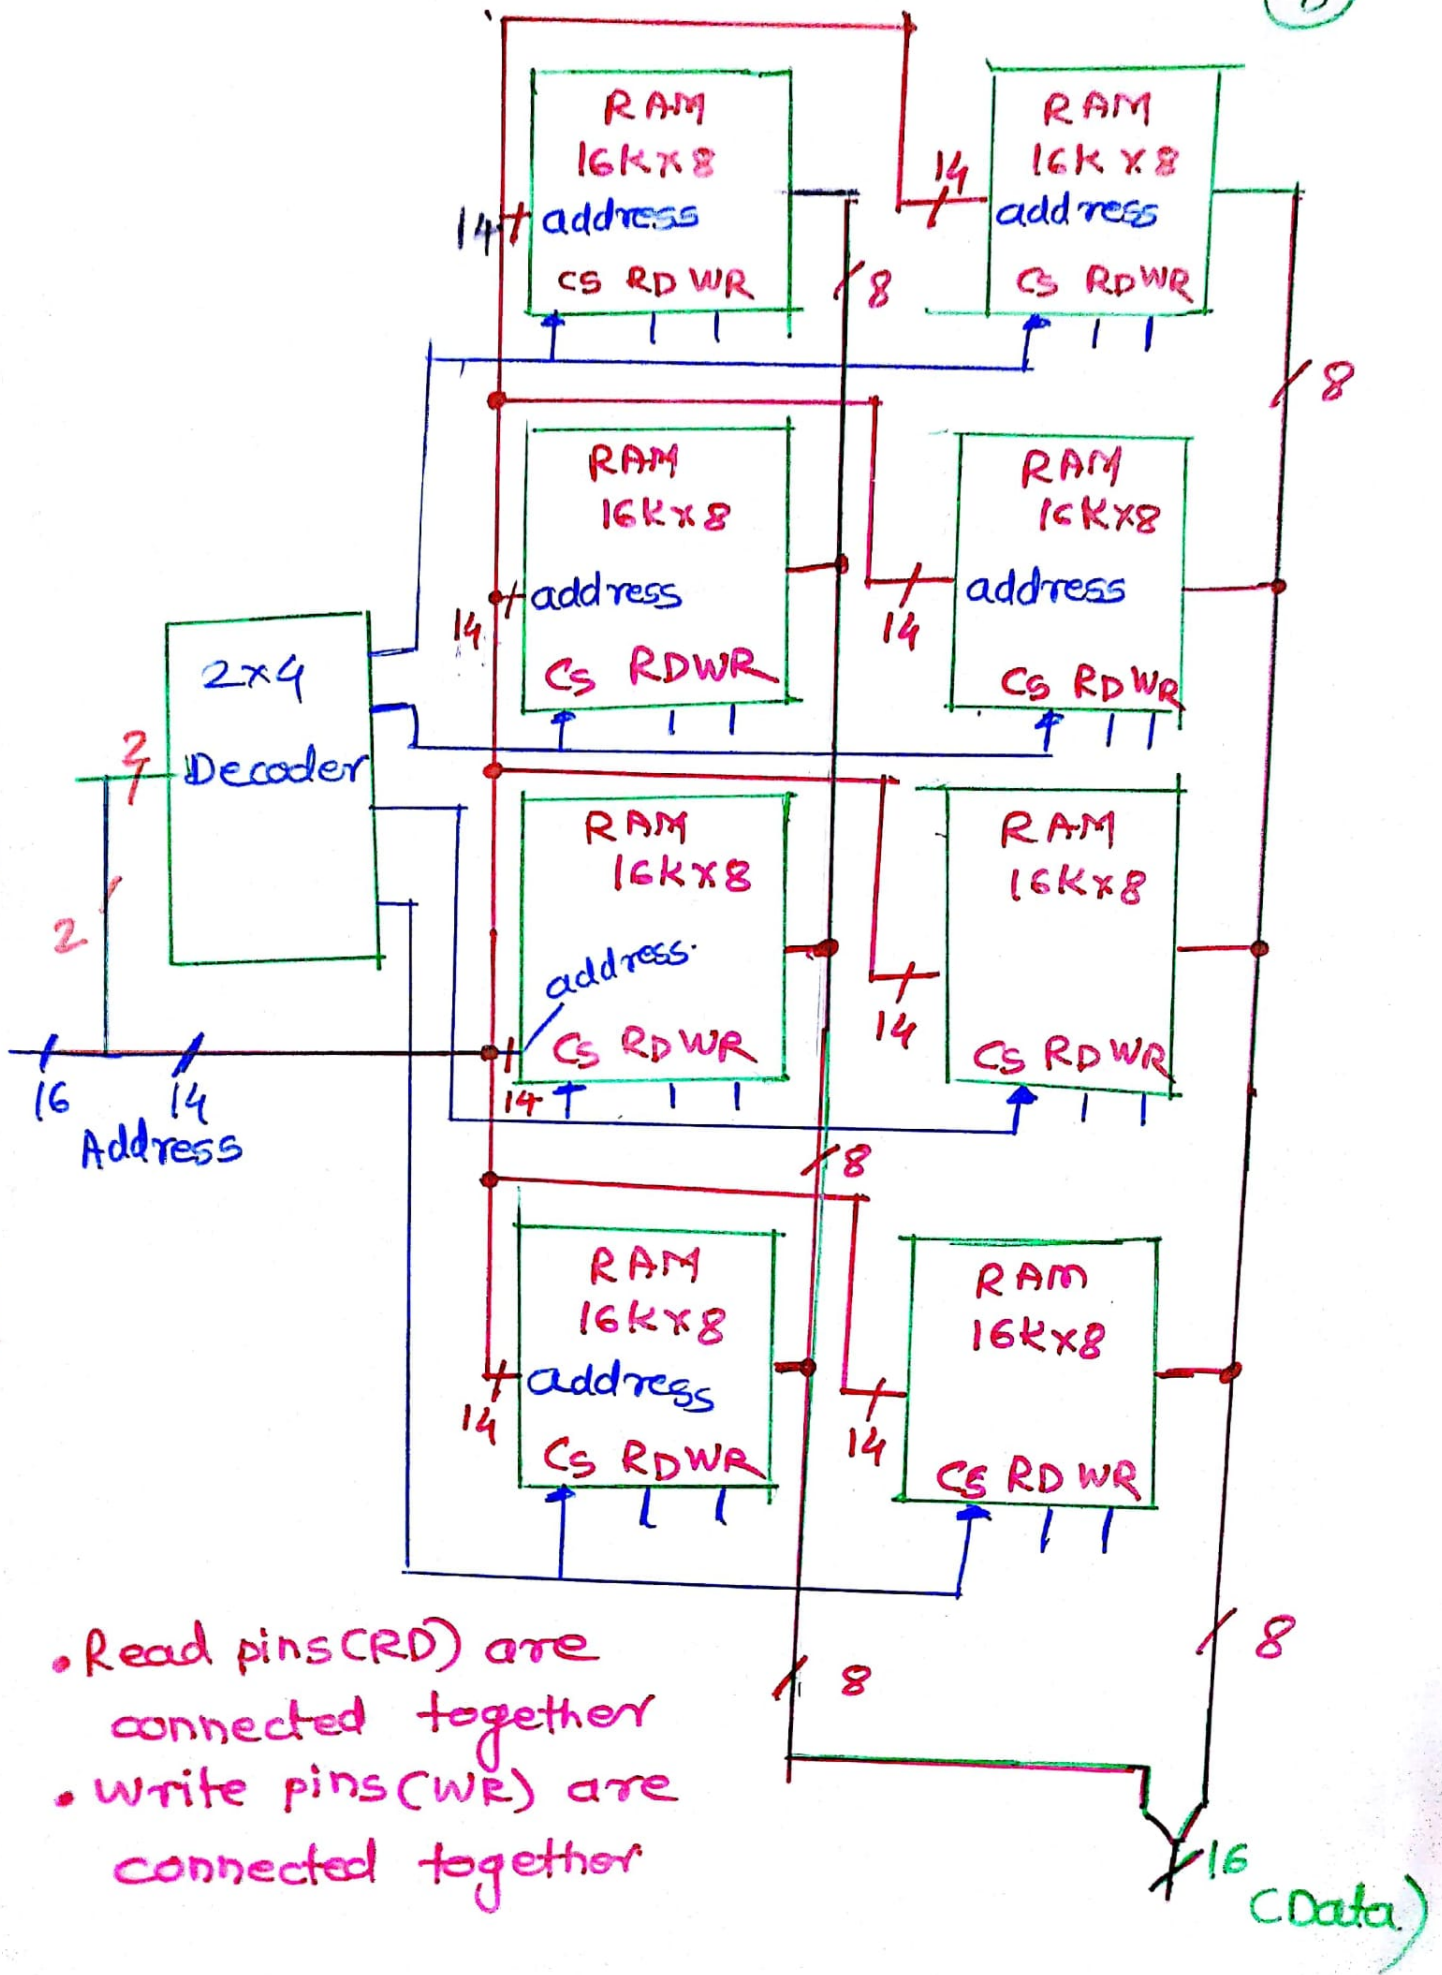 RAM
16K×8
14 address
CS RD WR
8
RAM
16K×8
14
address
CS RD WR
8
RAM
16K×8
14
address
CS RD WR
RAM
16K×8
14
address
CS RD WR
2×4
Decoder
2
2
16
14
Address
RAM
16K×8
address
CS RD WR
14
8
RAM
16K×8
14
CS RD WR
RAM
16K×8
address
14
CS RD WR
8
RAM
16K×8
14
CS RD WR
8
• Read pins (RD) are
connected together
• Write pins (WR) are
connected together
16
(Data)